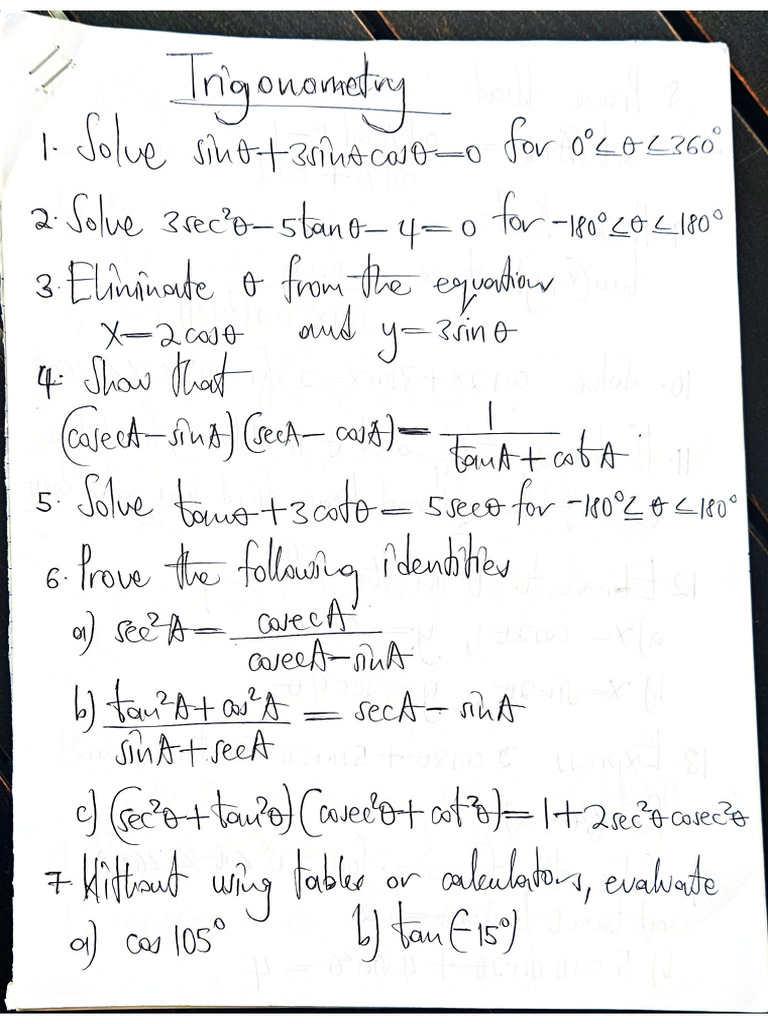 Trigonometry
1. Solve sinθ+3sinθcosθ=0 for 0°≤θ≤360°
2. Solve 3sec²θ-5tanθ-4=0 for -180°≤θ≤180°
3. Eliminate θ from the equation
x=2cosθ and y=3sinθ
4. Show that
(cosecA-sinA)(secA-cosA)=1/(tanA+cotA).
5. Solve tanθ+3cotθ=5secθ for -180°≤θ≤180°
6. Prove the following identities
a) sec²A=cosecA/(cosecA-sinA)
b) (tan²A+cos²A)/(sinA+secA)=secA-sinA
c) (sec²θ+tan²θ)(cosec²θ+cot²θ)=1+2sec²θcosec²θ
7. Without using tables or calculators, evaluate
a) cos 105° b) tan(-15°)